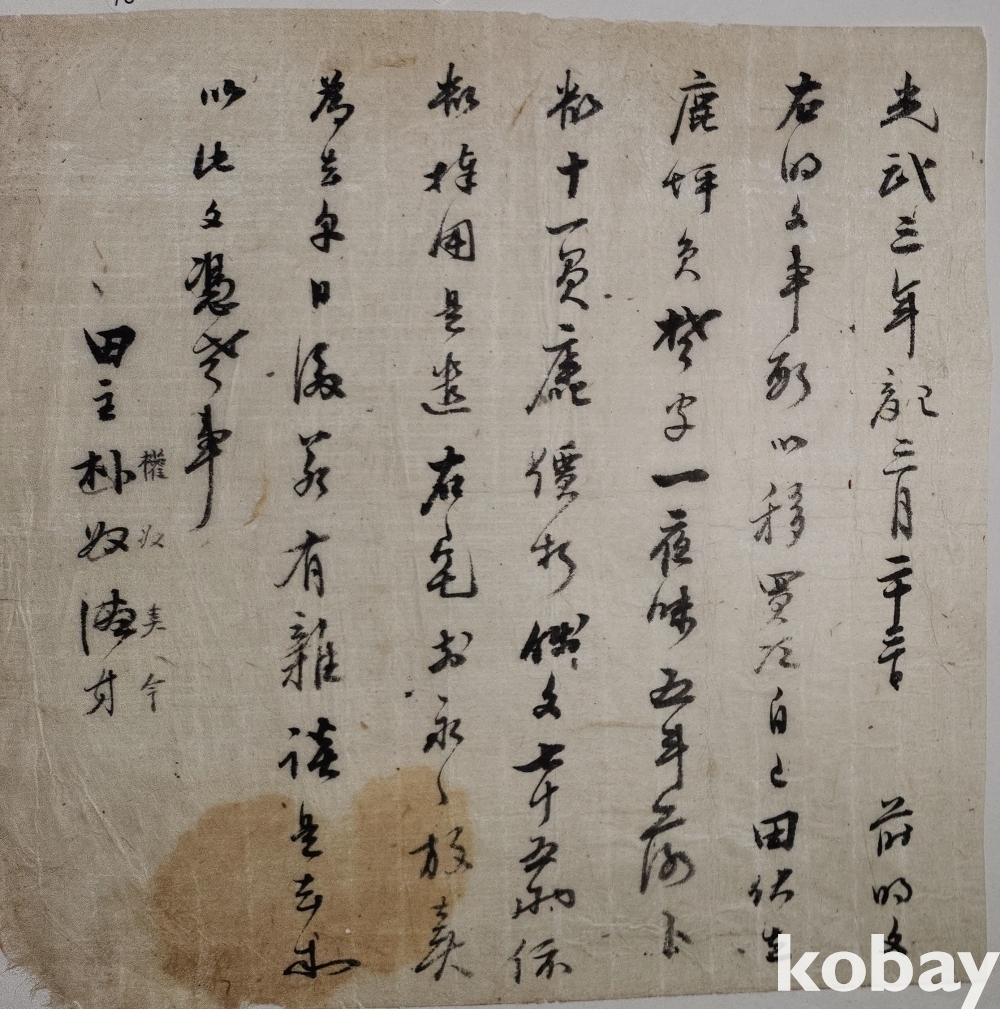 光武三年記三月二十二日 前明文
右明文事段以移買次自己田伏在
鹿坪員楚字一夜味五斗落卜
數十一負廤價折錢文七十五兩依
數捧用是遣右宅前永〻放賣
爲去乎日後若有雜談是去等
以此文憑考事
田主朴奴
權奴
kobay